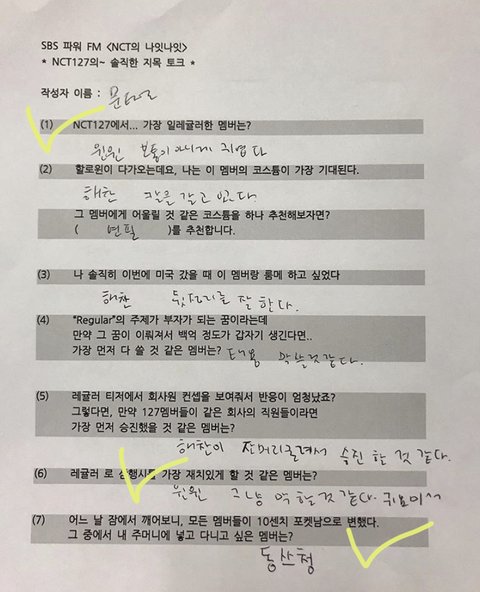 SBS 파워 FM <NCT의 나잇나잇>
* NCT127의~ 솔직한 지목 토크 *
작성자 이름 : 문태일
(1) NCT127에서... 가장 일레귤러한 멤버는?
윈윈 보통이 아니게 귀엽다
(2) 할로윈이 다가오는데요, 나는 이 멤버의 코스튬이 가장 기대된다.
해찬 칼을 갈고 있다
그 멤버에게 어울릴 것 같은 코스튬을 하나 추천해보자면?
( 연필 )를 추천합니다.
(3) 나 솔직히 이번에 미국 갔을 때 이 멤버랑 룸메 하고 싶었다
해찬 뒷정리를 잘 한다.
(4) “Regular”의 주제가 부자가 되는 꿈이라는데
만약 그 꿈이 이뤄져서 백억 정도가 갑자기 생긴다면..
가장 먼저 다 쓸 것 같은 멤버는? 태용 막 쓸것같다.
(5) 레귤러 티저에서 회사원 컨셉을 보여줘서 반응이 엄청났죠?
그렇다면, 만약 127멤버들이 같은 회사의 직원들이라면
가장 먼저 승진했을 것 같은 멤버는?
해찬이 잔머리굴려서 승진 할 것 같다.
(6) 레귤러 로 삼행시를 가장 재치있게 할 것 같은 멤버는?
윈윈 그냥 막 할것 같다. 귀요미^^
(7) 어느 날 잠에서 깨어보니, 모든 멤버들이 10센치 포켓남으로 변했다.
그 중에서 내 주머니에 넣고 다니고 싶은 멤버는?
동스청